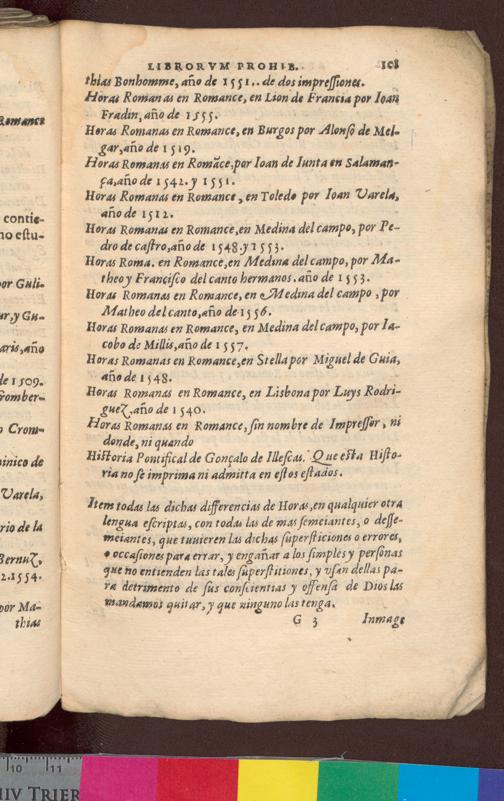 LIBRORVM PROHIB. 108
thias Bonhomme, año de 1551.. de dos impressiones.
Horas Romanas en Romance, en Lion de Francia por Ioan
Fradin, año de 1555.
Horas Romanas en Romance, en Burgos por Alonso de Mel-
gar, año de 1519.
Horas Romanas en Romãce, por Ioan de Iunta en Salaman-
ça, año de 1542. y 1551.
Horas Romanas en Romance, en Toledo por Ioan Varela,
año de 1512.
Horas Romanas en Romance, en Medina del campo, por Pe-
dro de castro, año de 1548. y 1553.
Horas Roma. en Romance, en Medina del campo, por Ma-
theo y Francisco del canto hermanos. año de 1553.
Horas Romanas en Romance, en Medina del campo, por
Matheo del canto, año de 1556.
Horas Romanas en Romance, en Medina del campo, por Ia-
cobo de Millis, año de 1557.
Horas Romanas en Romance, en Stella por Miguel de Guia,
año de 1548.
Horas Romanas en Romance, en Lisbona por Luys Rodri-
guez, año de 1540.
Horas Romanas en Romance, sin nombre de Impressor, ni
donde, ni quando
Historia Pontifical de Gonçalo de Illescas. Que esta Histo-
ria no se imprima ni admitta en estos estados.
Item todas las dichas differencias de Horas, en qualquier otra
lengua escriptas, con todas las de mas semeiantes, o desse-
meiantes, que tuuieren las dichas supersticiones o errores,
o occasiones para errar, y engañar a los simples y personas
que no entienden las tales superstitiones, y vsan dellas pa-
ra detrimento de sus conscientias y offensa de Dios las
mandamos quitar, y que ninguno las tenga.
G 3 Inmage
Romance
contie-
no estu-
por Guli-
ur, y Gu-
aris, año
de 1509.
Cromber-
o Crom-
minico de
Varela,
rio de la
Bernuz,
2. 1554.
por Ma-
thias
10 11
HIV TRIER